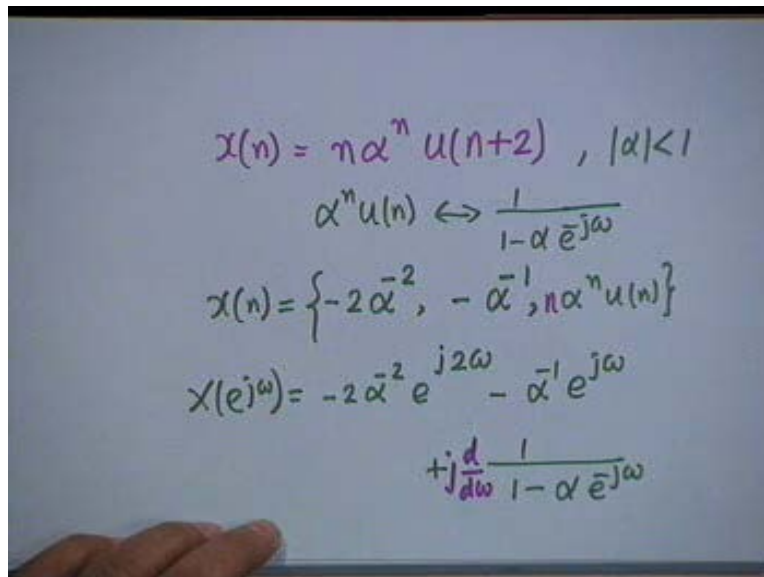 x(n) = nαⁿ u(n+2) , |α|<1
αⁿu(n) ↔ 1/(1-α e^{-jω})
x(n) = {-2α^{-2}, -α^{-1}, nαⁿ u(n)}
X(e^{jω}) = -2α^{-2} e^{j2ω} - α^{-1} e^{jω}
+j d/dω 1/(1-α e^{-jω})